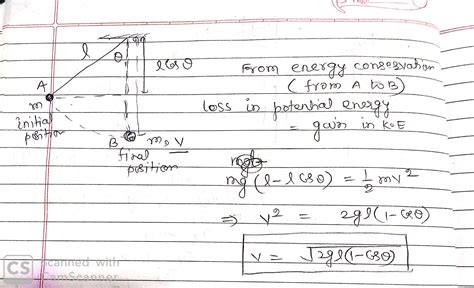 l
θ
l cos θ
A
m
initial
position
B
m, v
final
position
From energy conservation
(from A to B)
loss in potential energy
= gain in K.E
mg(l - l cos θ) = 1/2 mv²
⇒ v² = 2gl(1 - cos θ)
v = √2gl(1 - cos θ)
CS Scanned with
CamScanner